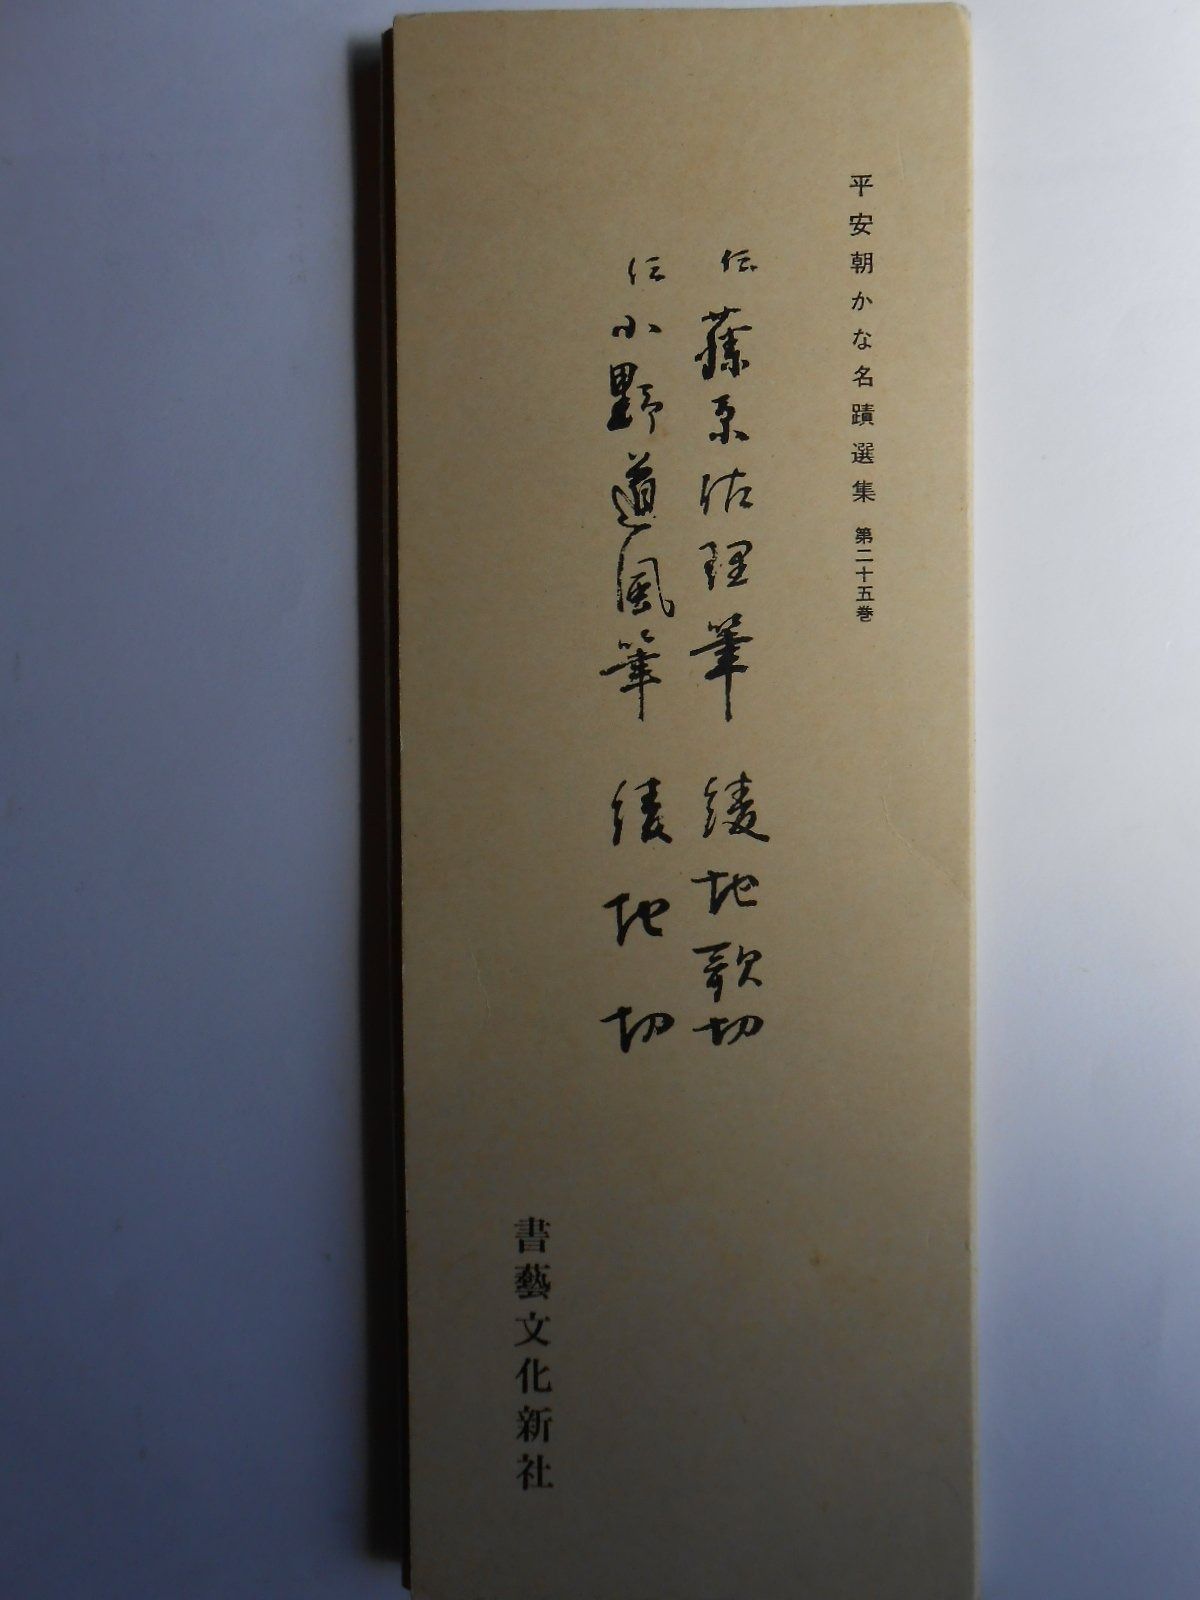 平安朝かな名蹟選集 第二十五巻
伝 藤原佐理筆 綾地歌切
伝 小野道風筆 綾地切
書藝文化新社